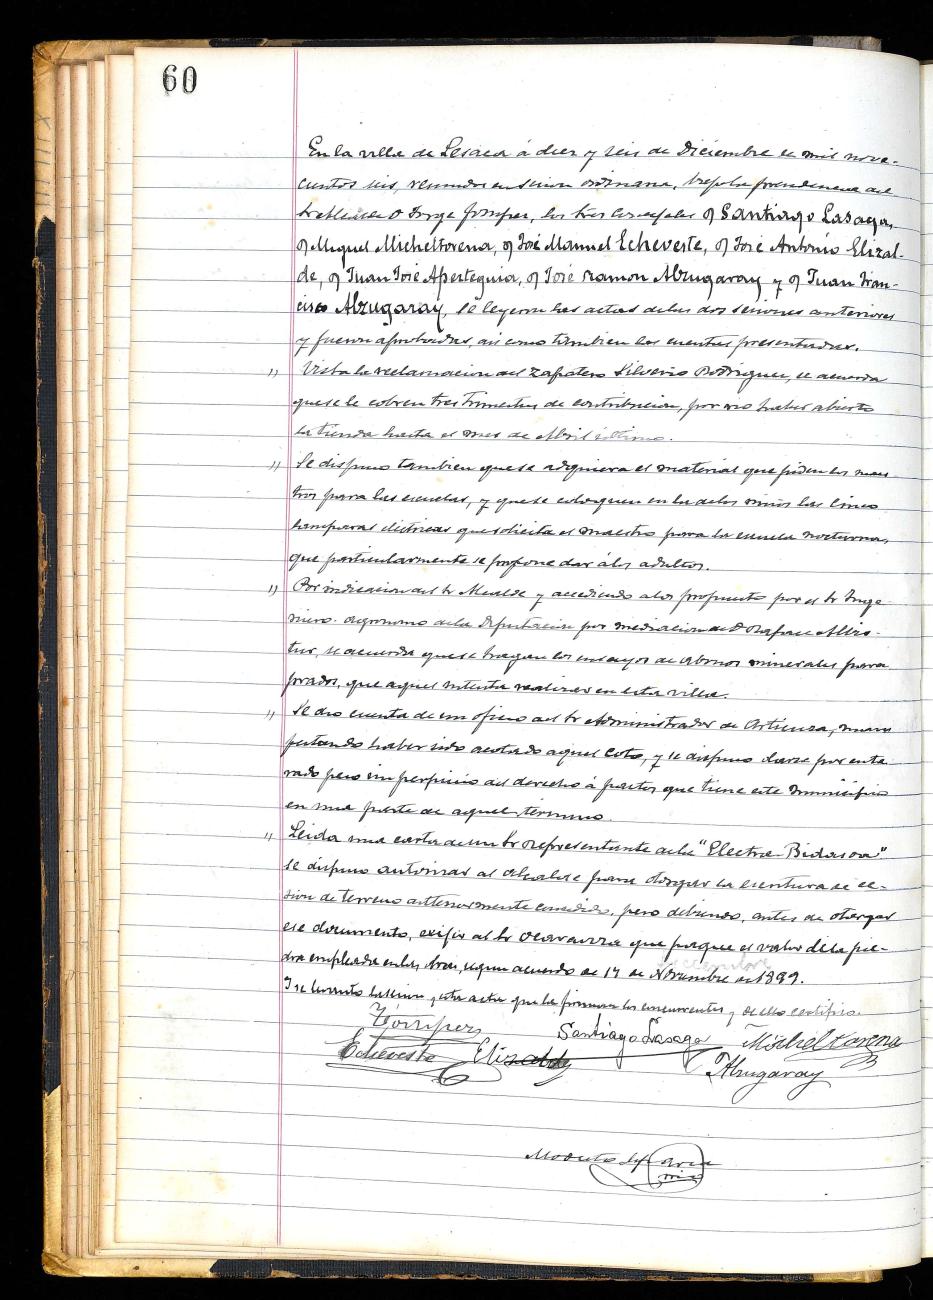 60
En la villa de Lesaca á diez y seis de Diciembre de mil nove-
cientos seis, reunidos en sesion ordinaria, bajo la presidencia del
Sr Alcalde D Jorge Jompes, los tres Concejales D Santiago Lasaga,
D Miguel Micheltorena, D José Manuel Echeveste, D José Antonio Elizal-
de, D Juan José Aperteguia, D José Ramon Alzugaray y D Juan Fran-
cisco Alzugaray, se leyeron las actas de las dos sesiones anteriores
y fueron aprobadas, asi como tambien las cuentas presentadas.
" Vista la reclamacion del zapatero Silverio Rodriguez, se acuerda
que se le cobren tres trimestres de contribucion, por no haber abierto
la tienda hasta el mes de Abril último.
" Se dispuso tambien que se adquiera el material que piden los maes-
tros para las escuelas, y que se coloquen en la de los niños las cinco
lamparas electricas que solicita el maestro para la escuela nocturna,
que particularmente se propone dar á los adultos.
" Por indicacion del Sr Alcalde y accediendo a lo propuesto por el Sr Inge
niero agronomo de la Diputacion por mediacion de D Rafael Albis-
tur, se acuerda que se hagan los ensayos de abonos minerales para
prados, que aquel intenta realizar en esta villa.
" Se dio cuenta de un oficio del Sr Administrador de Articuza, mani
festando haber sido acotado aquel Coto, y se dispuso darse por ente
rado pero sin perjuicio del derecho á pastos que tiene este municipio
en una parte de aquel termino.
" Leida una carta de un Sr representante de la "Electra-Bidasoa"
se dispuso autorizar al Alcalde para otorgar la escritura de ce-
sion de terreno anteriormente concedido, pero debiendo, antes de otorgar
ese documento, exigir al Sr que pague el valor de la pie-
dra empleada en las obras, segun acuerdo de 17 de Noviembre de 1889.
Diciembre
I se levanto la sesion y esta acta que la firman los concurrentes y de ello certifico.
Jompes Santiago Lasaga Micheltorena
Echeveste Elizalde Alzugaray
Modesto